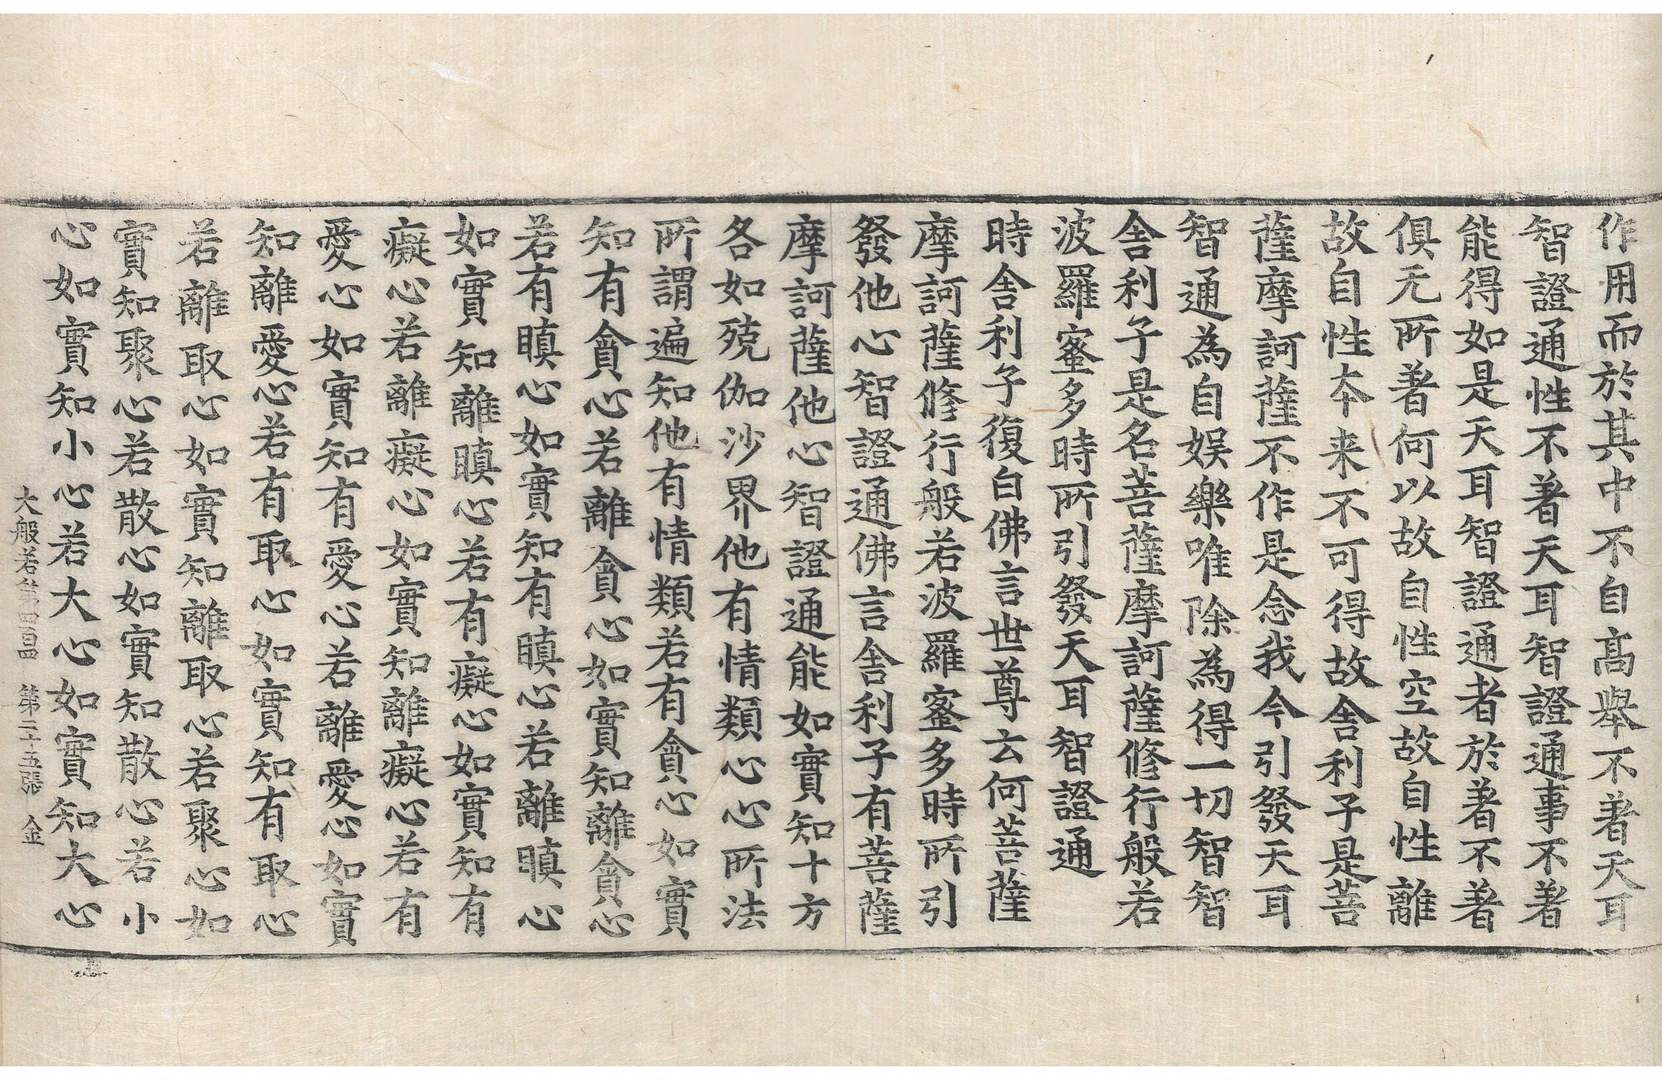 作用而於其中不自高舉不著天耳
智證通性不著天耳智證通事不著
能得如是天耳智證通者於著不著
俱无所著何以故自性空故自性離
故自性本来不可得故舍利子是菩
薩摩訶薩不作是念我今引發天耳
智通為自娱樂唯除為得一切智智
舍利子是名菩薩摩訶薩修行般若
波羅蜜多時所引發天耳智證通
時舍利子復白佛言世尊云何菩薩
摩訶薩修行般若波羅蜜多時所引
發他心智證通佛言舍利子有菩薩
摩訶薩他心智證通能如實知十方
各如殑伽沙界他有情類心心所法
所謂遍知他有情類若有貪心如實
知有貪心若離貪心如實知離貪心
若有瞋心如實知有瞋心若離瞋心
如實知離瞋心若有癡心如實知有
癡心若離癡心如實知離癡心若有
愛心如實知有愛心若離愛心如實
知離愛心若有取心如實知有取心
若離取心如實知離取心若聚心如
實知聚心若散心如實知散心若小
心如實知小心若大心如實知大心
大般若第四百四 第二十五張 金